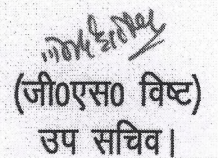 (जी0एस0 विष्ट)
उप सचिव।